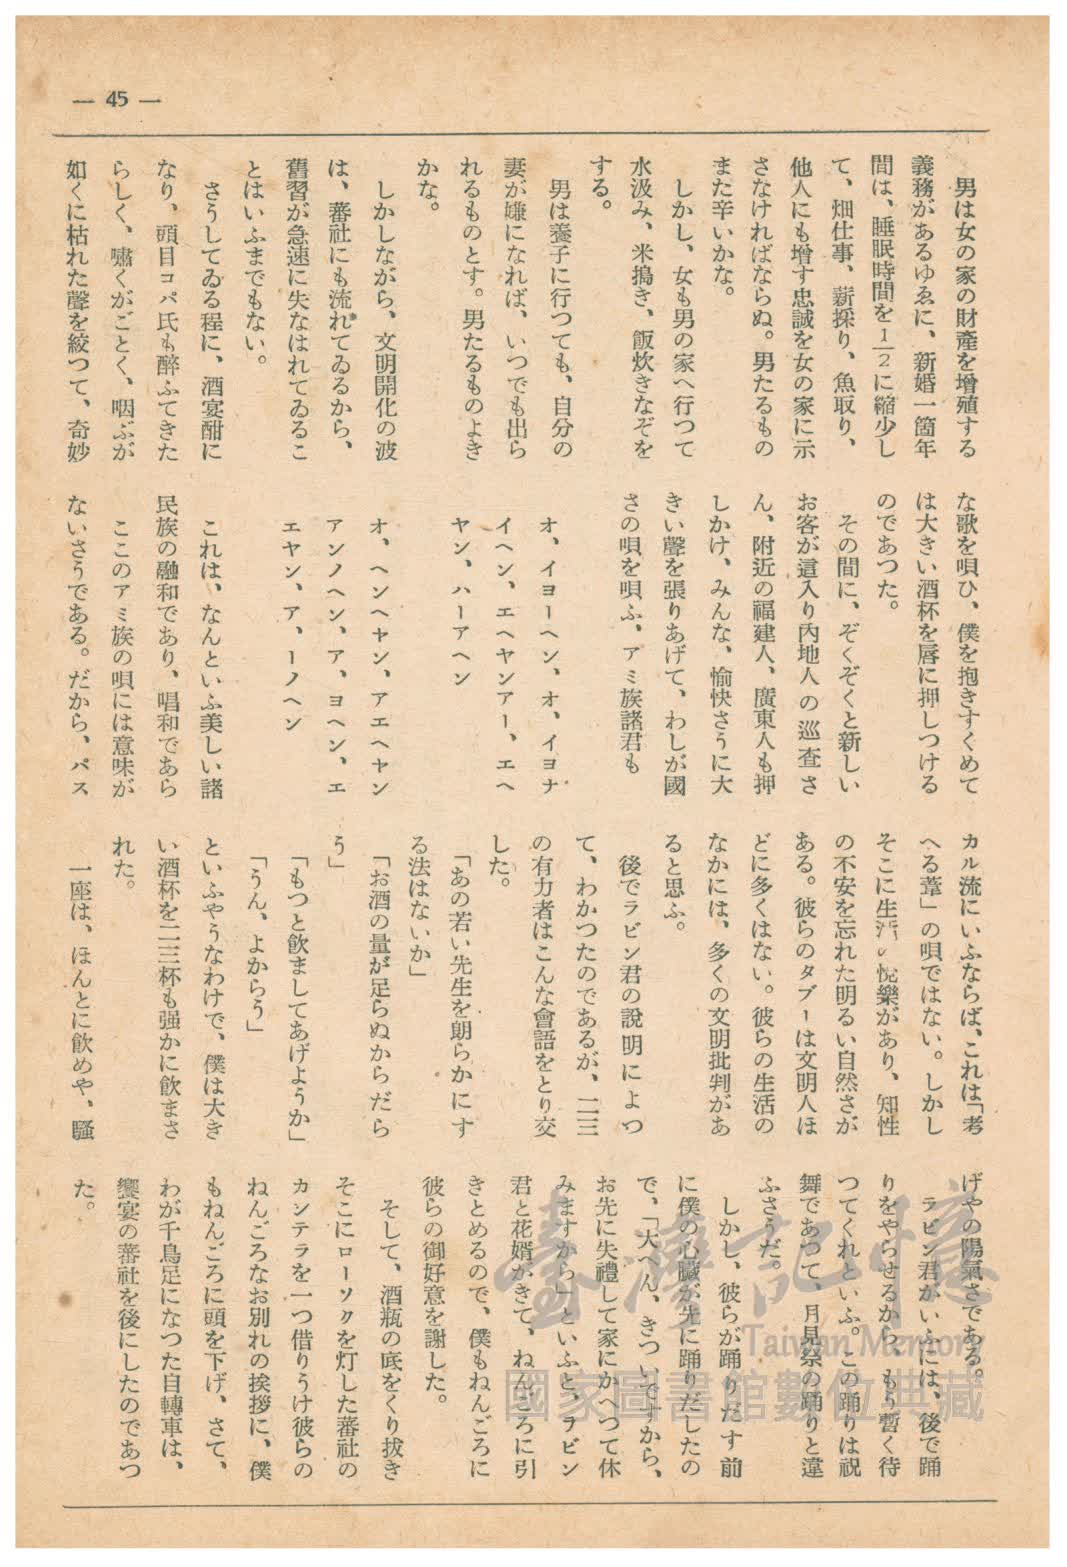 — 45 —
男は女の家の財產を增殖する
義務があるゆゑに、新婚一箇年
間は、睡眠時間を1/2に縮少し
て、畑仕事、薪採り、魚取り、
他人にも增す忠誠を女の家に示
さなければならぬ。男たるもの
また辛いかな。
しかし、女も男の家へ行つて
水汲み、米搗き、飯炊きなぞを
する。
男は養子に行つても、自分の
妻が嫌になれば、いつでも出ら
れるものとす。男たるものよき
かな。
しかしながら、文明開化の波
は、蕃社にも流れてゐるから、
舊習が急速に失なはれてゐるこ
とはいふまでもない。
さうしてゐる程に、酒宴酣に
なり、頭目コパ氏も醉ふてきた
らしく、嘯くがごとく、咽ぶが
如くに枯れた聲を絞つて、奇妙
な歌を唄ひ、僕を抱きすくめて
は大きい酒杯を唇に押しつける
のであつた。
その間に、ぞくぞくと新しい
お客が這入り內地人の巡査さ
ん、附近の福建人、廣東人も押
しかけ、みんな、愉快さうに大
きい聲を張りあげて、わしが國
さの唄を唄ふ、アミ族諸君も
オ、イヨーヘン、オ、イヨナ
イヘン、エヘヤンアー、エヘ
ヤン、ハーアヘン
オ、ヘンヘヤン、アエヘヤン
アンノヘン、ア、ヨヘン、エ
エヤン、ア、ーノヘン
これは、なんといふ美しい諸
民族の融和であり、唱和であら
ここのアミ族の唄には意味が
ないさうである。だから、パス
カル流にいふならば、これは「考
へる葦」の唄ではない。しかし
そこに生活の悅樂があり、知性
の不安を忘れた明るい自然さが
ある。彼らのタブーは文明人ほ
どに多くはない。彼らの生活の
なかには、多くの文明批判があ
ると思ふ。
後でラビン君の說明によつ
て、わかつたのであるが、二三
の有力者はこんな會語をとり交
した。
「あの若い先生を朗らかにす
る法はないか」
「お酒の量が足らぬからだら
う」
「もつと飮ましてあげようか」
「うん、よからう」
といふやうなわけで、僕は大き
い酒杯を二三杯も强かに飮まさ
れた。
一座は、ほんとに飮めや、騷
げやの陽氣さである。
ラビン君がいふには、後で踊
りをやらせるから、もう暫く待
つてくれといふ。この踊りは祝
舞であつて、月見祭の踊りと違
ふさうだ。
しかし、彼らが踊りだす前
に僕の心臟が先に踊りだしたの
で、「大へん、きついですから、
お先に失禮して家にかへつて休
みますから」といふと、ラビン
君と花婿がきて、ねんごろに引
きとめるので、僕もねんごろに
彼らの御好意を謝した。
そして、酒瓶の底をくり拔き
そこにローソクを灯した蕃社の
カンテラを一つ借りうけ彼らの
ねんごろなお別れの挨拶に、僕
もねんごろに頭を下げ、さて、
わが千鳥足になつた自轉車は、
饗宴の蕃社を後にしたのであつ
た。
臺灣記憶
Taiwan Memory
國家圖書館數位典藏